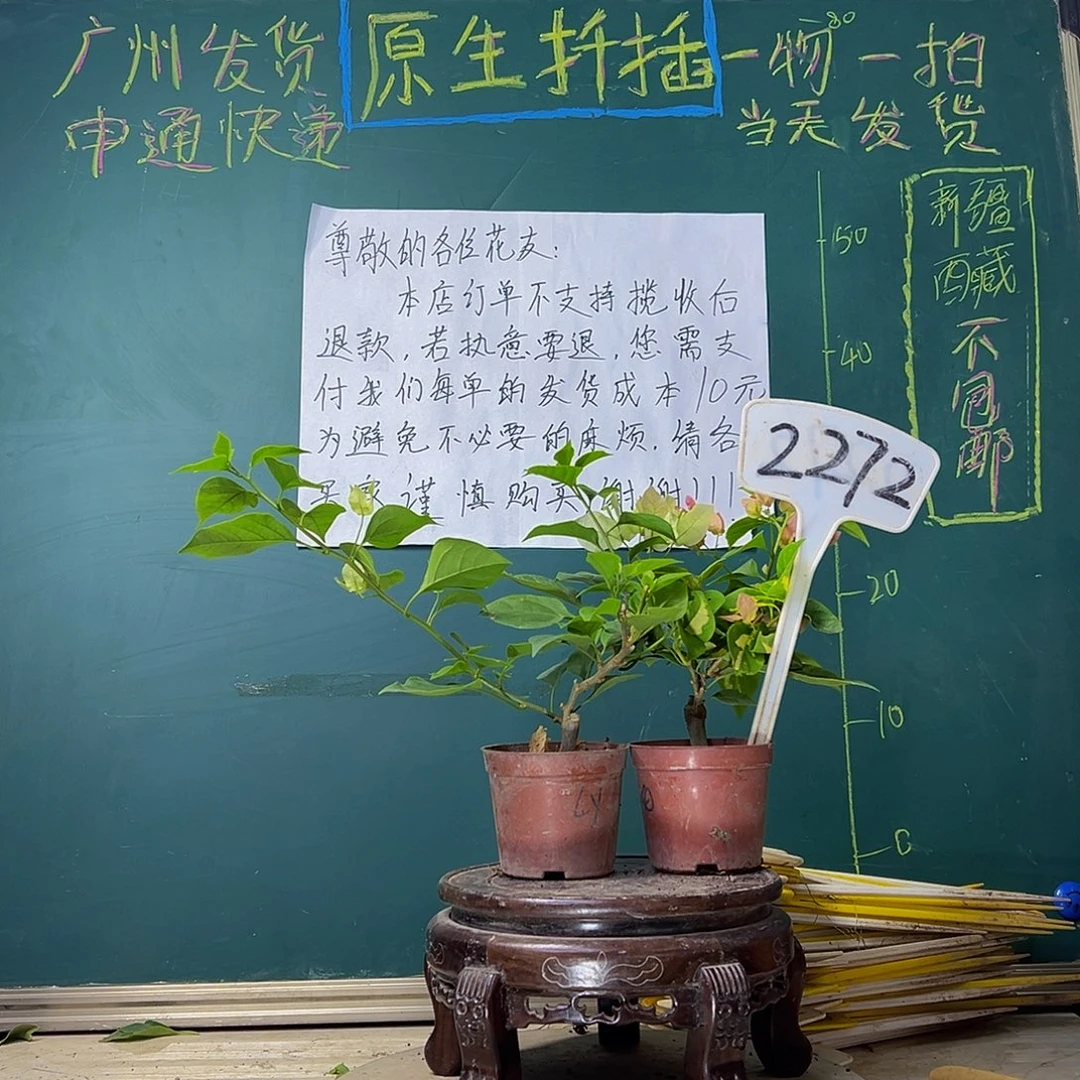 广州发货
申通快递
原生扦插
一物一拍
当天发货
80
50
40
20
10
0
新疆
西藏
不
包
邮
尊敬的各位花友:
本店订单不支持揽收后
退款,若执意要退,您需支
付我们每单的发货成本10元
为避免不必要的麻烦.请各
谨慎购买 谢谢!!!
2272